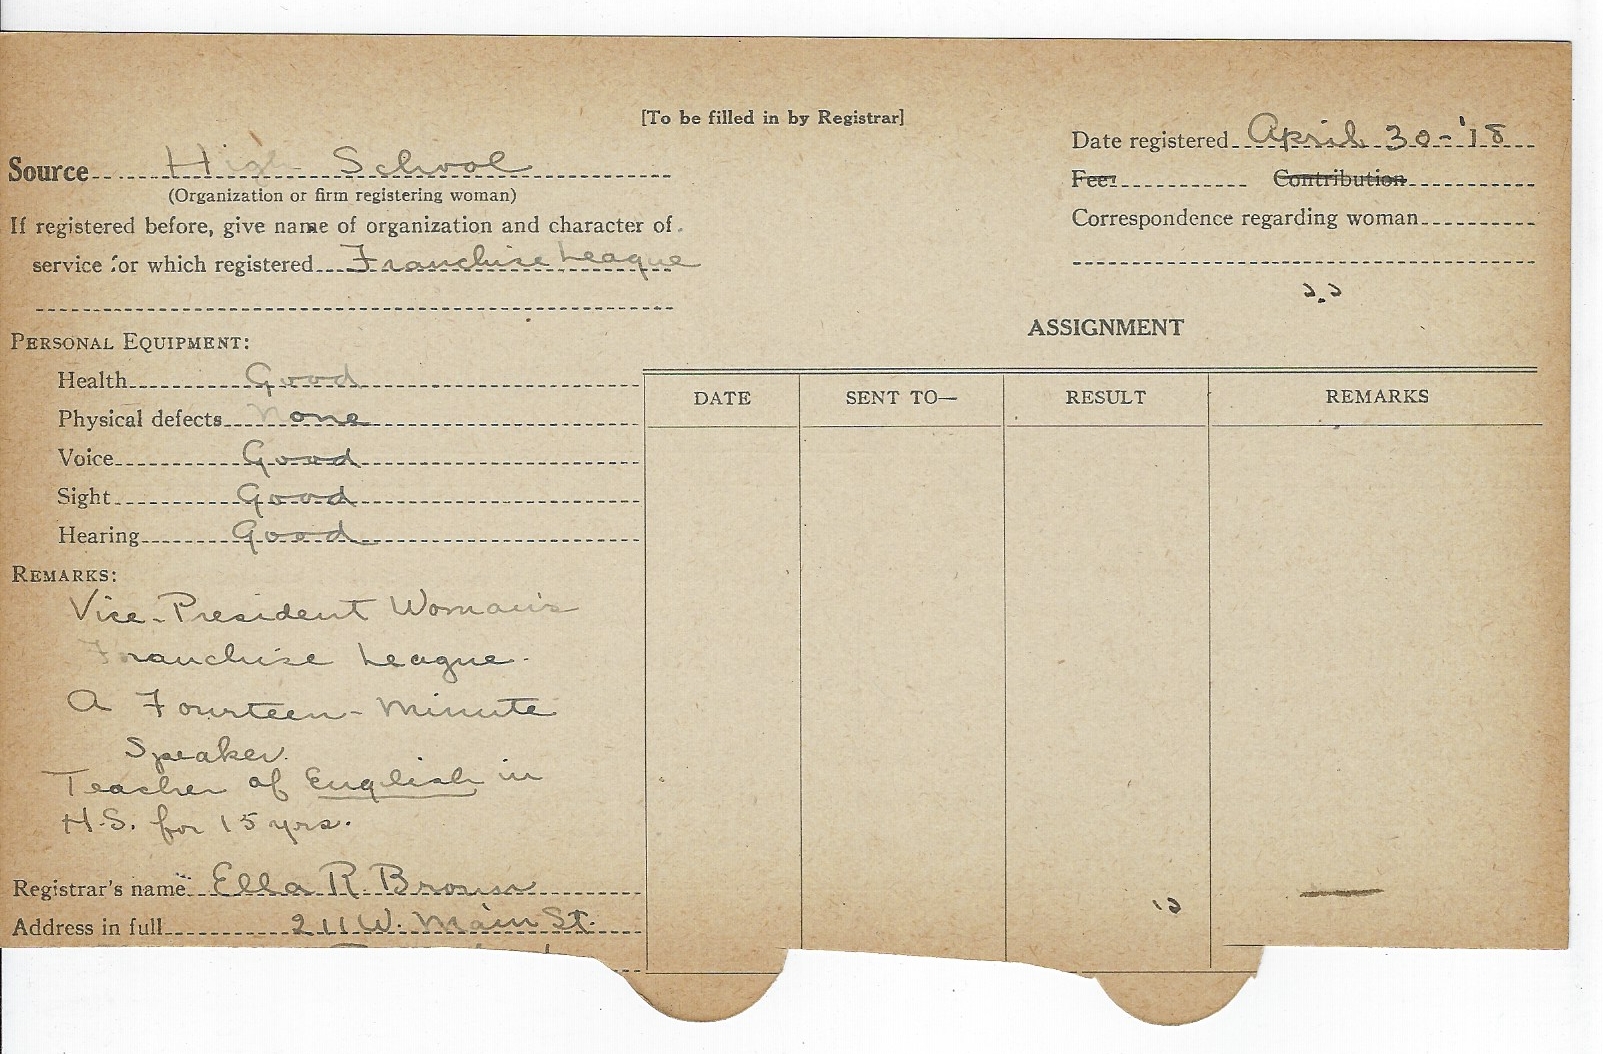 [To be filled in by Registrar]
Date registered April 30-'18
Source High School
(Organization or firm registering woman)
Fee Contribution
If registered before, give name of organization and character of
Correspondence regarding woman
service for which registered Franchise League
ASSIGNMENT
PERSONAL EQUIPMENT:
Health Good
DATE SENT TO— RESULT REMARKS
Physical defects None
Voice Good
Sight Good
Hearing Good
REMARKS:
Vice-President Woman's
Franchise League.
A Fourteen-Minute
Speaker.
Teacher of English in
H.S. for 15 yrs.
Registrar's name Ella R. Brown
Address in full 211 W. Main St.